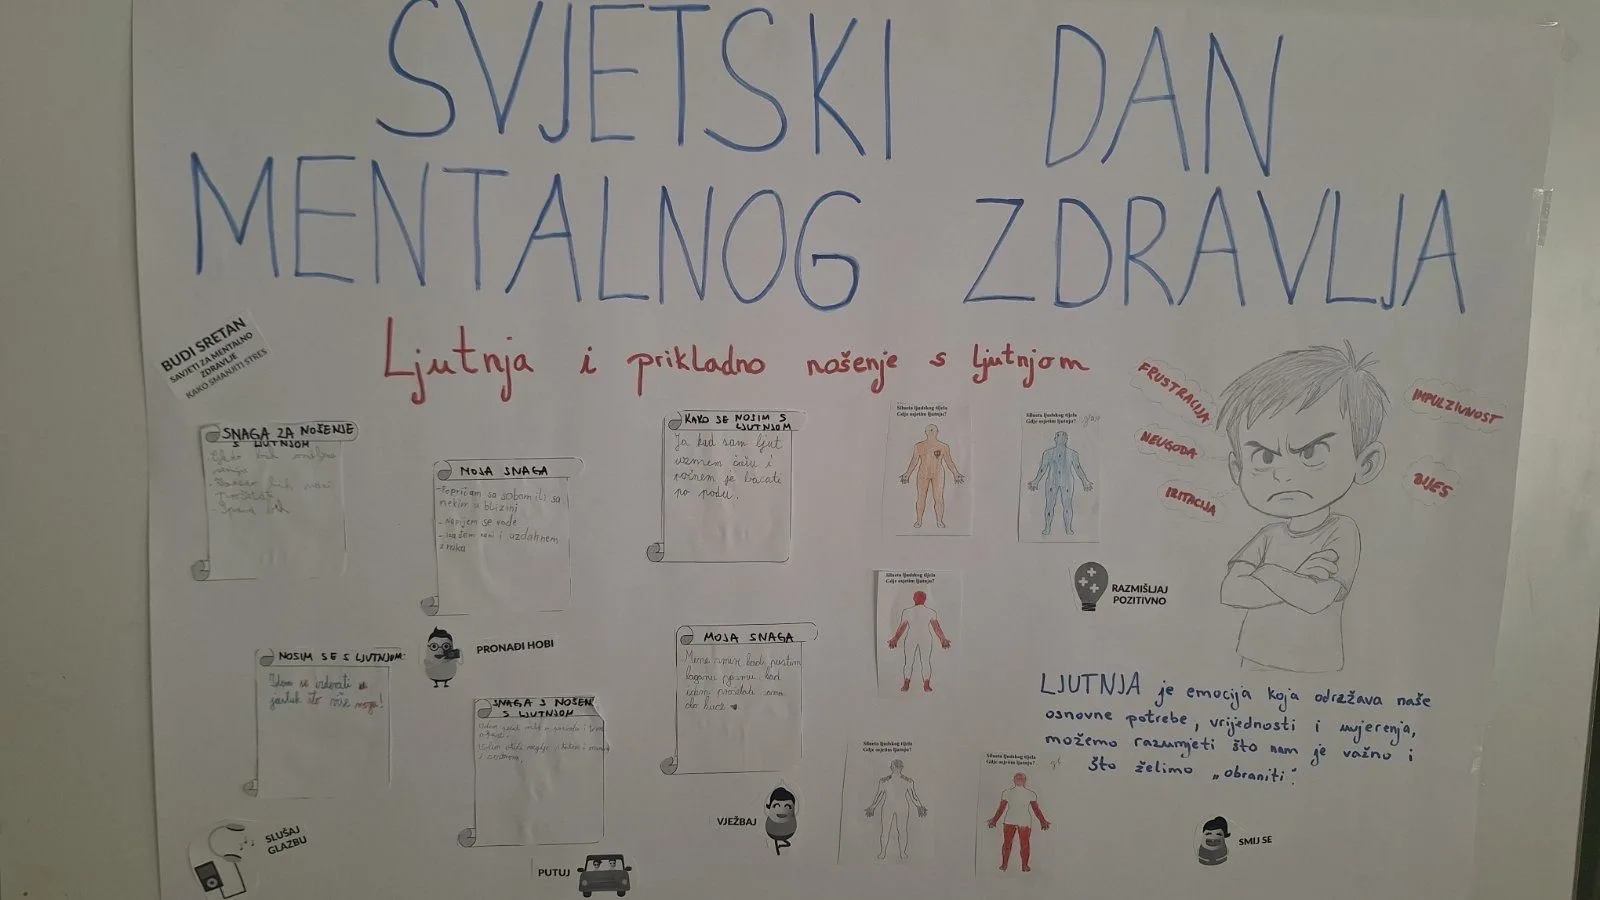 SVJETSKI DAN
MENTALNOG ZDRAVLJA
BUDI SRETAN
SAVJETI ZA MENTALNO
ZDRAVLJE
KAKO SMANJITI STRES
Ljutnja i prikladno nošenje s ljutnjom
FRUSTRACIJA
NEUGODA
IRITACIJA
IMPULZIVNOST
BIJES
SNAGA ZA NOŠENJE
S LJUTNJOM
MOJA SNAGA
-Popričam sa sobom ili sa
nekim u blizini
- Napijem se vode
i uzdahnem
zraka
KAKO SE NOSIM S
LJUTNJOM
Ja kad sam ljut
uzmem čašu i
počnem je bacati
po podu.
Silueta ljudskog tijela
Gdje osjetim ljutnju?
Silueta ljudskog tijela
Gdje osjetim ljutnju?
Silueta ljudskog tijela
Gdje osjetim ljutnju?
RAZMIŠLJAJ
POZITIVNO
NOSIM SE S LJUTNJOM:
Idem se
jastuk što više mogu!
PRONAĐI HOBI
SNAGA S NOŠEN
S LJUTNJOM
MOJA SNAGA
kad pustim
laganu pjesmu kad
idem prošetati sama
do kuće
LJUTNJA je emocija koja održava naše
osnovne potrebe, vrijednosti i uvjerenja,
možemo razumjeti što nam je važno i
što želimo „obraniti".
Silueta ljudskog tijela
Gdje osjetim ljutnju?
Silueta ljudskog tijela
Gdje osjetim ljutnju?
SLUŠAJ
GLAZBU
PUTUJ
VJEŽBAJ
SMIJ SE